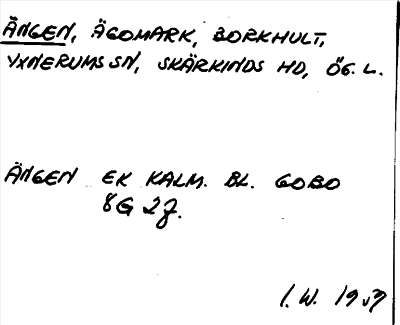 ÄNGEN, ÄGOMARK, BORKHULT,
YXNERUMS SN, SKÄRKINDS HD, ÖG. L.
ÄNGEN EK KALM. BL. GOBO
8G 2J.
I. W. 19